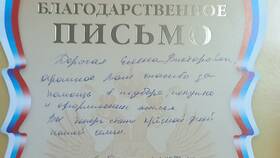 БЛАГОДАРСТВЕННОЕ
ПИСЬМО
Дорогая Елена Викторовна
огромное Вам спасибо за
помощь в подборе, покупке
и оформлении
Вы теперь стали
нашей семьи.